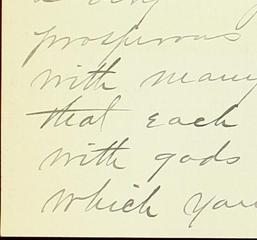 prosperous
with many
that each
with gods
which you